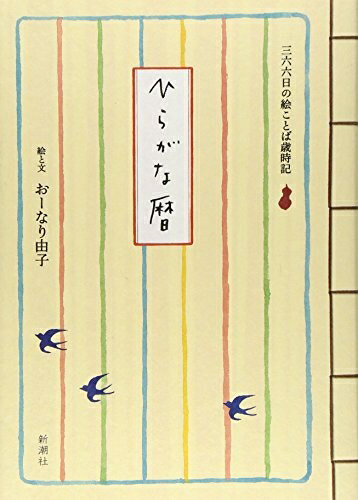 三六六日の絵ことば歳時記
ひらがな暦
絵と文 おーなり由子
新潮社